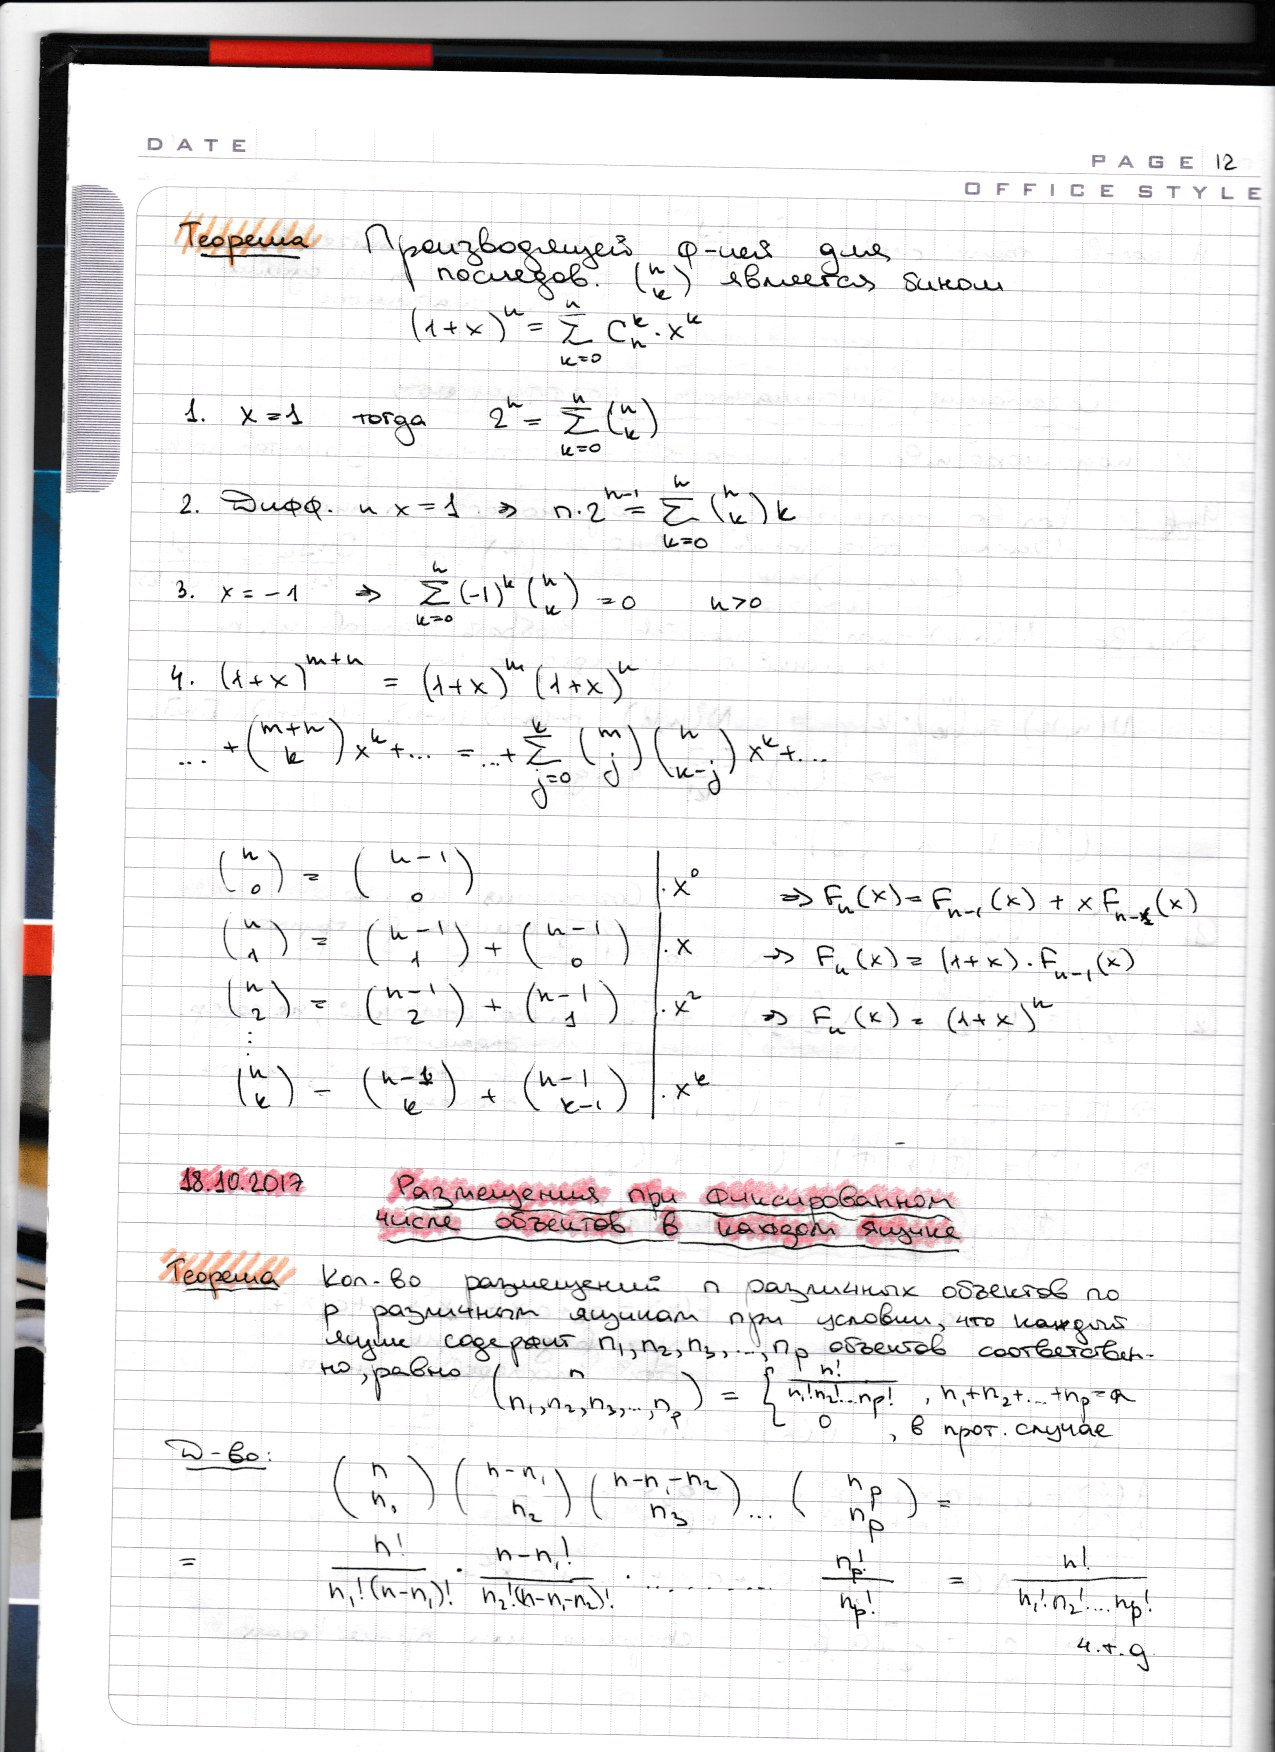 DATE
PAGE 12
OFFICE STYLE
Теорема Производящей ф-ией для
последов. (n k) является бином
(1+x)^n = Σ_{k=0}^{n} C_n^k · x^k
1. x=1 тогда 2^n = Σ_{k=0}^{n} (n k)
2. Дифф. и x=1 ⇒ n·2^{n-1} = Σ_{k=0}^{n} (n k) k
3. x=-1 ⇒ Σ_{k=0}^{n} (-1)^k (n k) = 0 n>0
4. (1+x)^{m+n} = (1+x)^m (1+x)^n
... + (m+n k) x^k + ... = ... + Σ_{j=0}^{k} (m j) (n k-j) x^k + ...
(n 0) = (n-1 0) | · x^0 ⇒ F_n(x) = F_{n-1}(x) + x F_{n-1}(x)
(n 1) = (n-1 1) + (n-1 0) | · x ⇒ F_n(x) = (1+x) · F_{n-1}(x)
(n 2) = (n-1 2) + (n-1 1) | · x^2 ⇒ F_n(x) = (1+x)^n
⋮
(n k) = (n-1 k) + (n-1 k-1) | · x^k
18.10.2017 Размещения при фиксированном
числе объектов в каждом ящике
Теорема Кол-во размещений n различных объектов по
p различным ящикам при условии, что каждый
ящик содержит n_1, n_2, n_3, ..., n_p объектов соответствен-
но, равно (n n_1, n_2, n_3, ..., n_p) = { n!/(n_1! n_2! ... n_p!) , n_1+n_2+...+n_p=n
0 , в прот. случае
Д-во:
(n n_1) (n-n_1 n_2) (n-n_1-n_2 n_3) ... (n_p n_p) =
= n!/(n_1!(n-n_1)!) · n-n_1!/(n_2!(n-n_1-n_2)!) · ......... n_p!/n_p! = n!/(n_1! n_2! ... n_p!)
ч.т.д